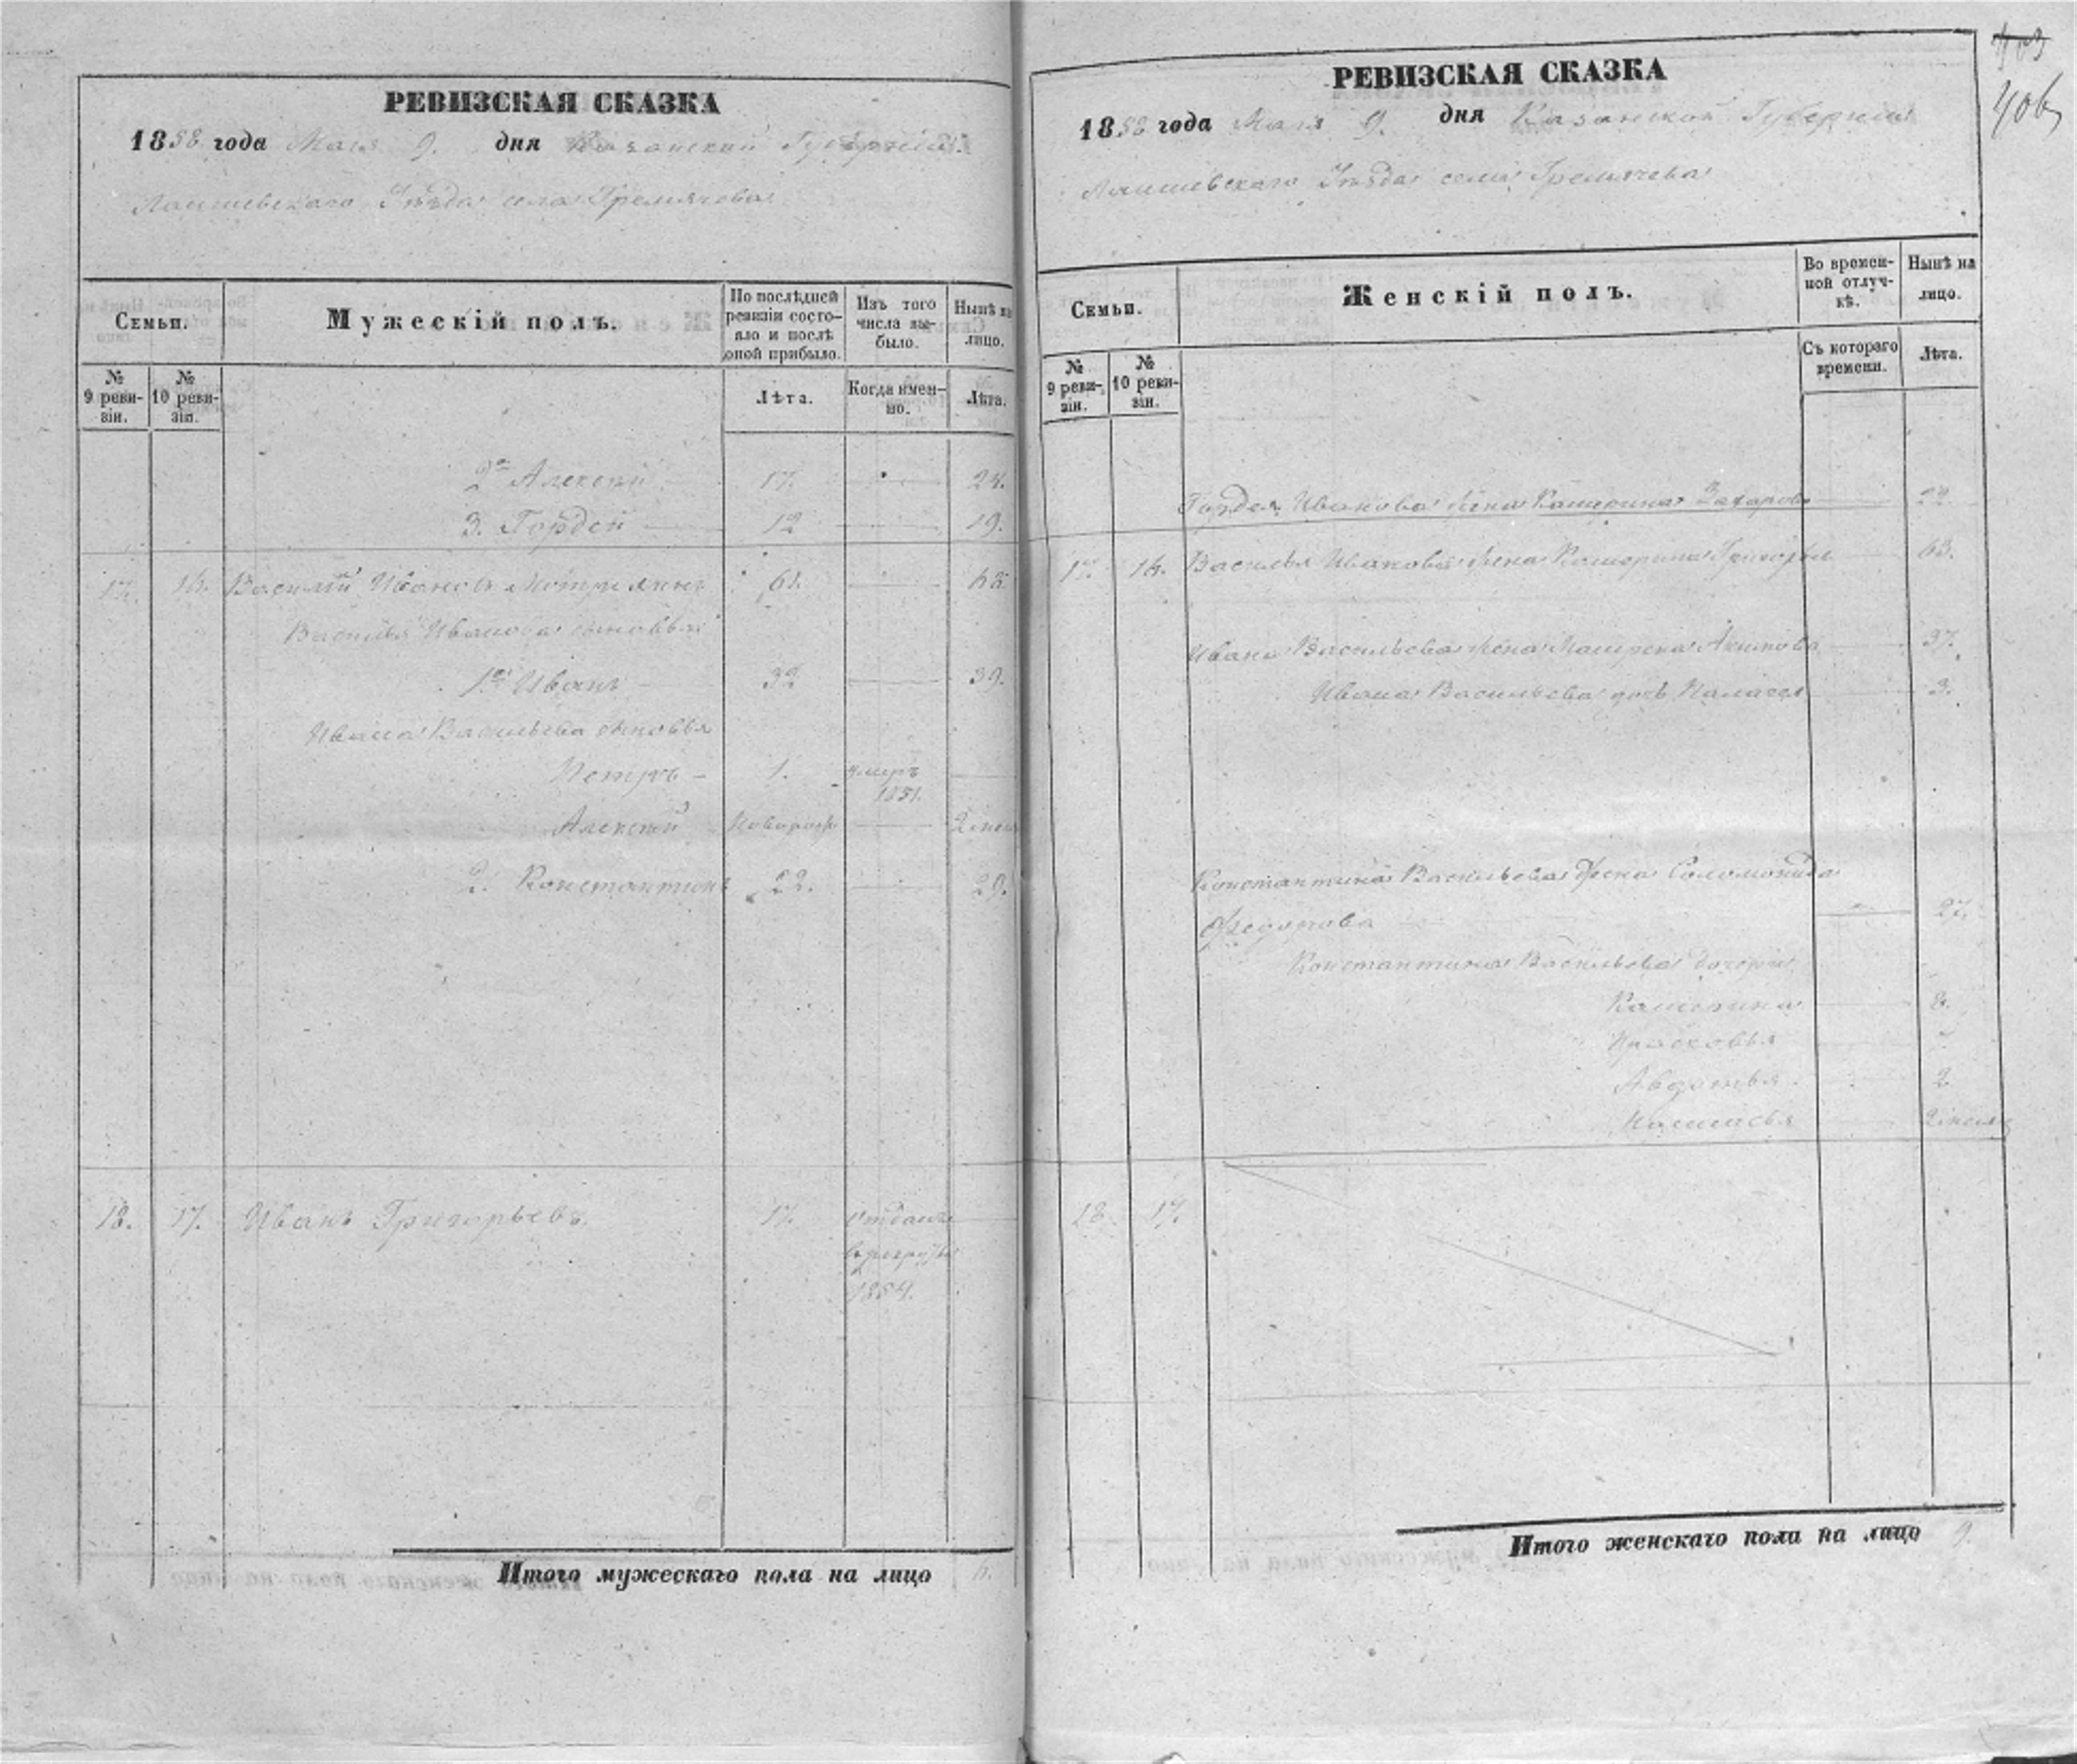 РЕВИЗСКАЯ СКАЗКА
1858 года Мая 9. дня Казанской Губерніи
Лаишевскаго Уѣзда села Гремячева
Семьи.
Мужескій полъ.
По послѣдней ревизіи состояло и послѣ оной прибыло.
Изъ того числа выбыло.
Нынѣ на лицо.
№ 9 ревизіи.
№ 10 ревизіи.
Лѣта.
Когда именно.
Лѣта.
2й Алексѣй 17. 24.
3. Гордей 12 19.
17. 16. Василій Ивановъ 61. 68
Василья Иванова сыновья
1й Иванъ 32 39.
Ивана Васильева сыновья
Петръ 1. умеръ 1851.
Алексѣй новорож
2. Константинъ 22. 29.
18. 17. Иванъ Григорьевъ. 17. отданъ
в рекруты
1854.
Итого мужескаго пола на лицо 6.
403
406
РЕВИЗСКАЯ СКАЗКА
1858 года Мая 9. дня Казанской Губерніи
Лаишевскаго Уѣзда села Гремячева
Семьи.
Женскій полъ.
Во временной отлучкѣ.
Нынѣ на лицо.
№ 9 ревизіи.
№ 10 ревизіи.
Съ котораго времени.
Лѣта.
Гордея Иванова жена Катерина Захарова 22
17. 16. Василья Иванова жена Катерина Григорьева 63.
Ивана Васильева жена Матрена Акимова 37.
Ивана Васильева дочь 3.
Константина Васильева жена Соломонида
Федотова 27.
Константина Васильева дочери
Катерина 8.
Прасковья
Авдотья 2
Настасья
18 17.
Итого женскаго пола на лицо 9.